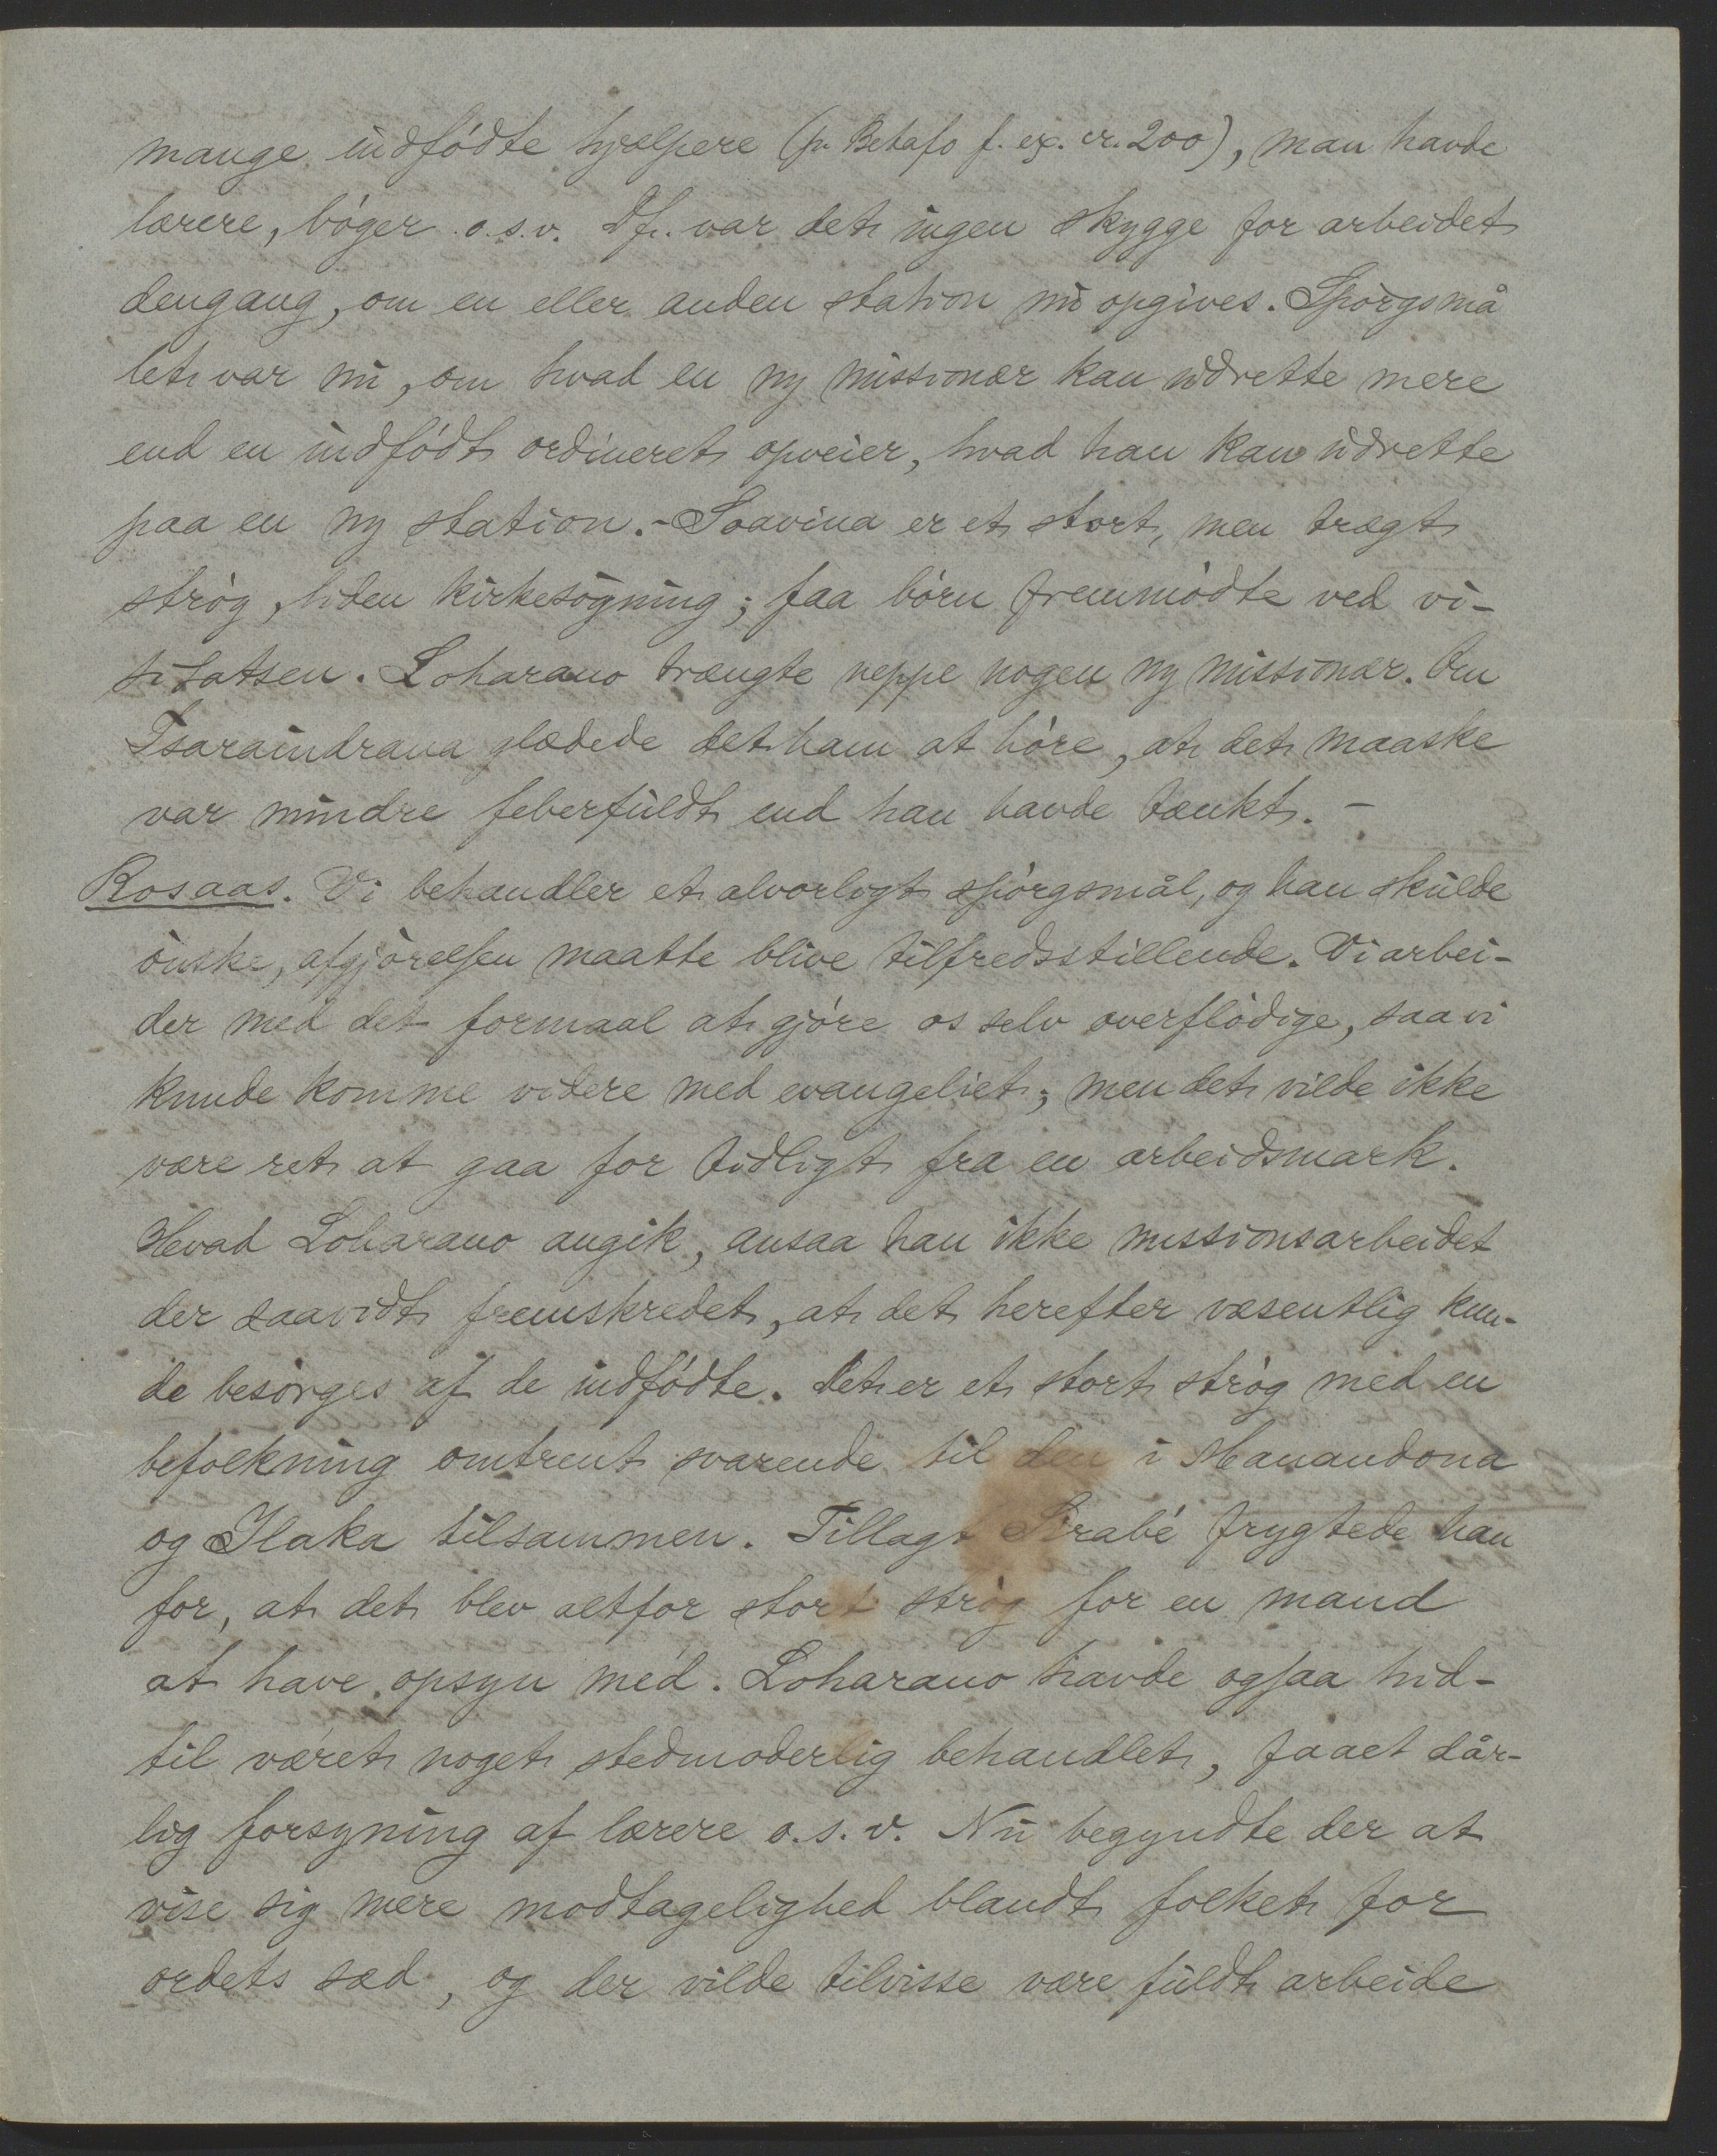 mange indfødte hjælpere (p. Betafo f. ex. cr. 200), man havde
lærere, bøger o.s.v. Df. var det ingen skygge for arbeidet
dengang, om en eller anden station nu opgives. Spørgsmå
let var nu, om hvad en ny missionær kan udrette mere
end en indfødt ordineret opveier, hvad han kan udrette
paa en ny station. - Soavina er et stort, men trægt
strøg, liden kirkesøgning; faa børn fremmødte ved vi-
sitatsen. Loharano trængte neppe nogen ny missionær. Om
Tsaraindrana glædede det ham at høre, at det maaske
var mindre feberfuldt end han havde tænkt. -
Rosaas. Vi behandler et alvorligt spørgsmål, og han skulde
ønske, afgjørelsen maatte blive tilfredsstillende. Vi arbei-
der med det formaal at gjøre os selv overflødige, saa vi
kunde komme videre med evangeliet; men det vilde ikke
være ret at gaa for tidligt fra en arbeidsmark.
Hvad Loharano angik, ansaa han ikke missionsarbeidet
der saavidt fremskredet, at det herefter væsentlig kun-
de besørges af de indfødte. Det er et stort strøg med en
befolkning omtrent svarende til den i Manandona
og Ilaka tilsammen. Tillagt Sirabé frygtede han
for, at det blev altfor stort strøg for en mand
at have opsyn med. Loharano havde ogsaa hid-
til været noget stedmoderlig behandlet, faaet dår-
lig forsyning af lærere o.s.v. Nu begyndte der at
vise sig mere modtagelighed blandt folket for
ordets sæd, og der vilde tilvisse være fuldt arbeide